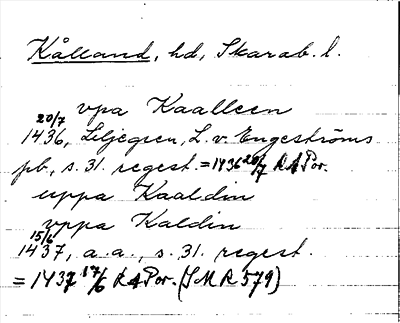 Kålland, hd, Skarab. l.
vpa Kaalleen
20/7
1436, Liljegren, L. v. Engeströms
pb, s. 31. regest. = 1436 20/7 RAPor.
uppa Kaaldin
vppa Kaldin
15/6
1437, a.a., s. 31. regest.
= 1437 17/6 RAPor. (SMR 579)